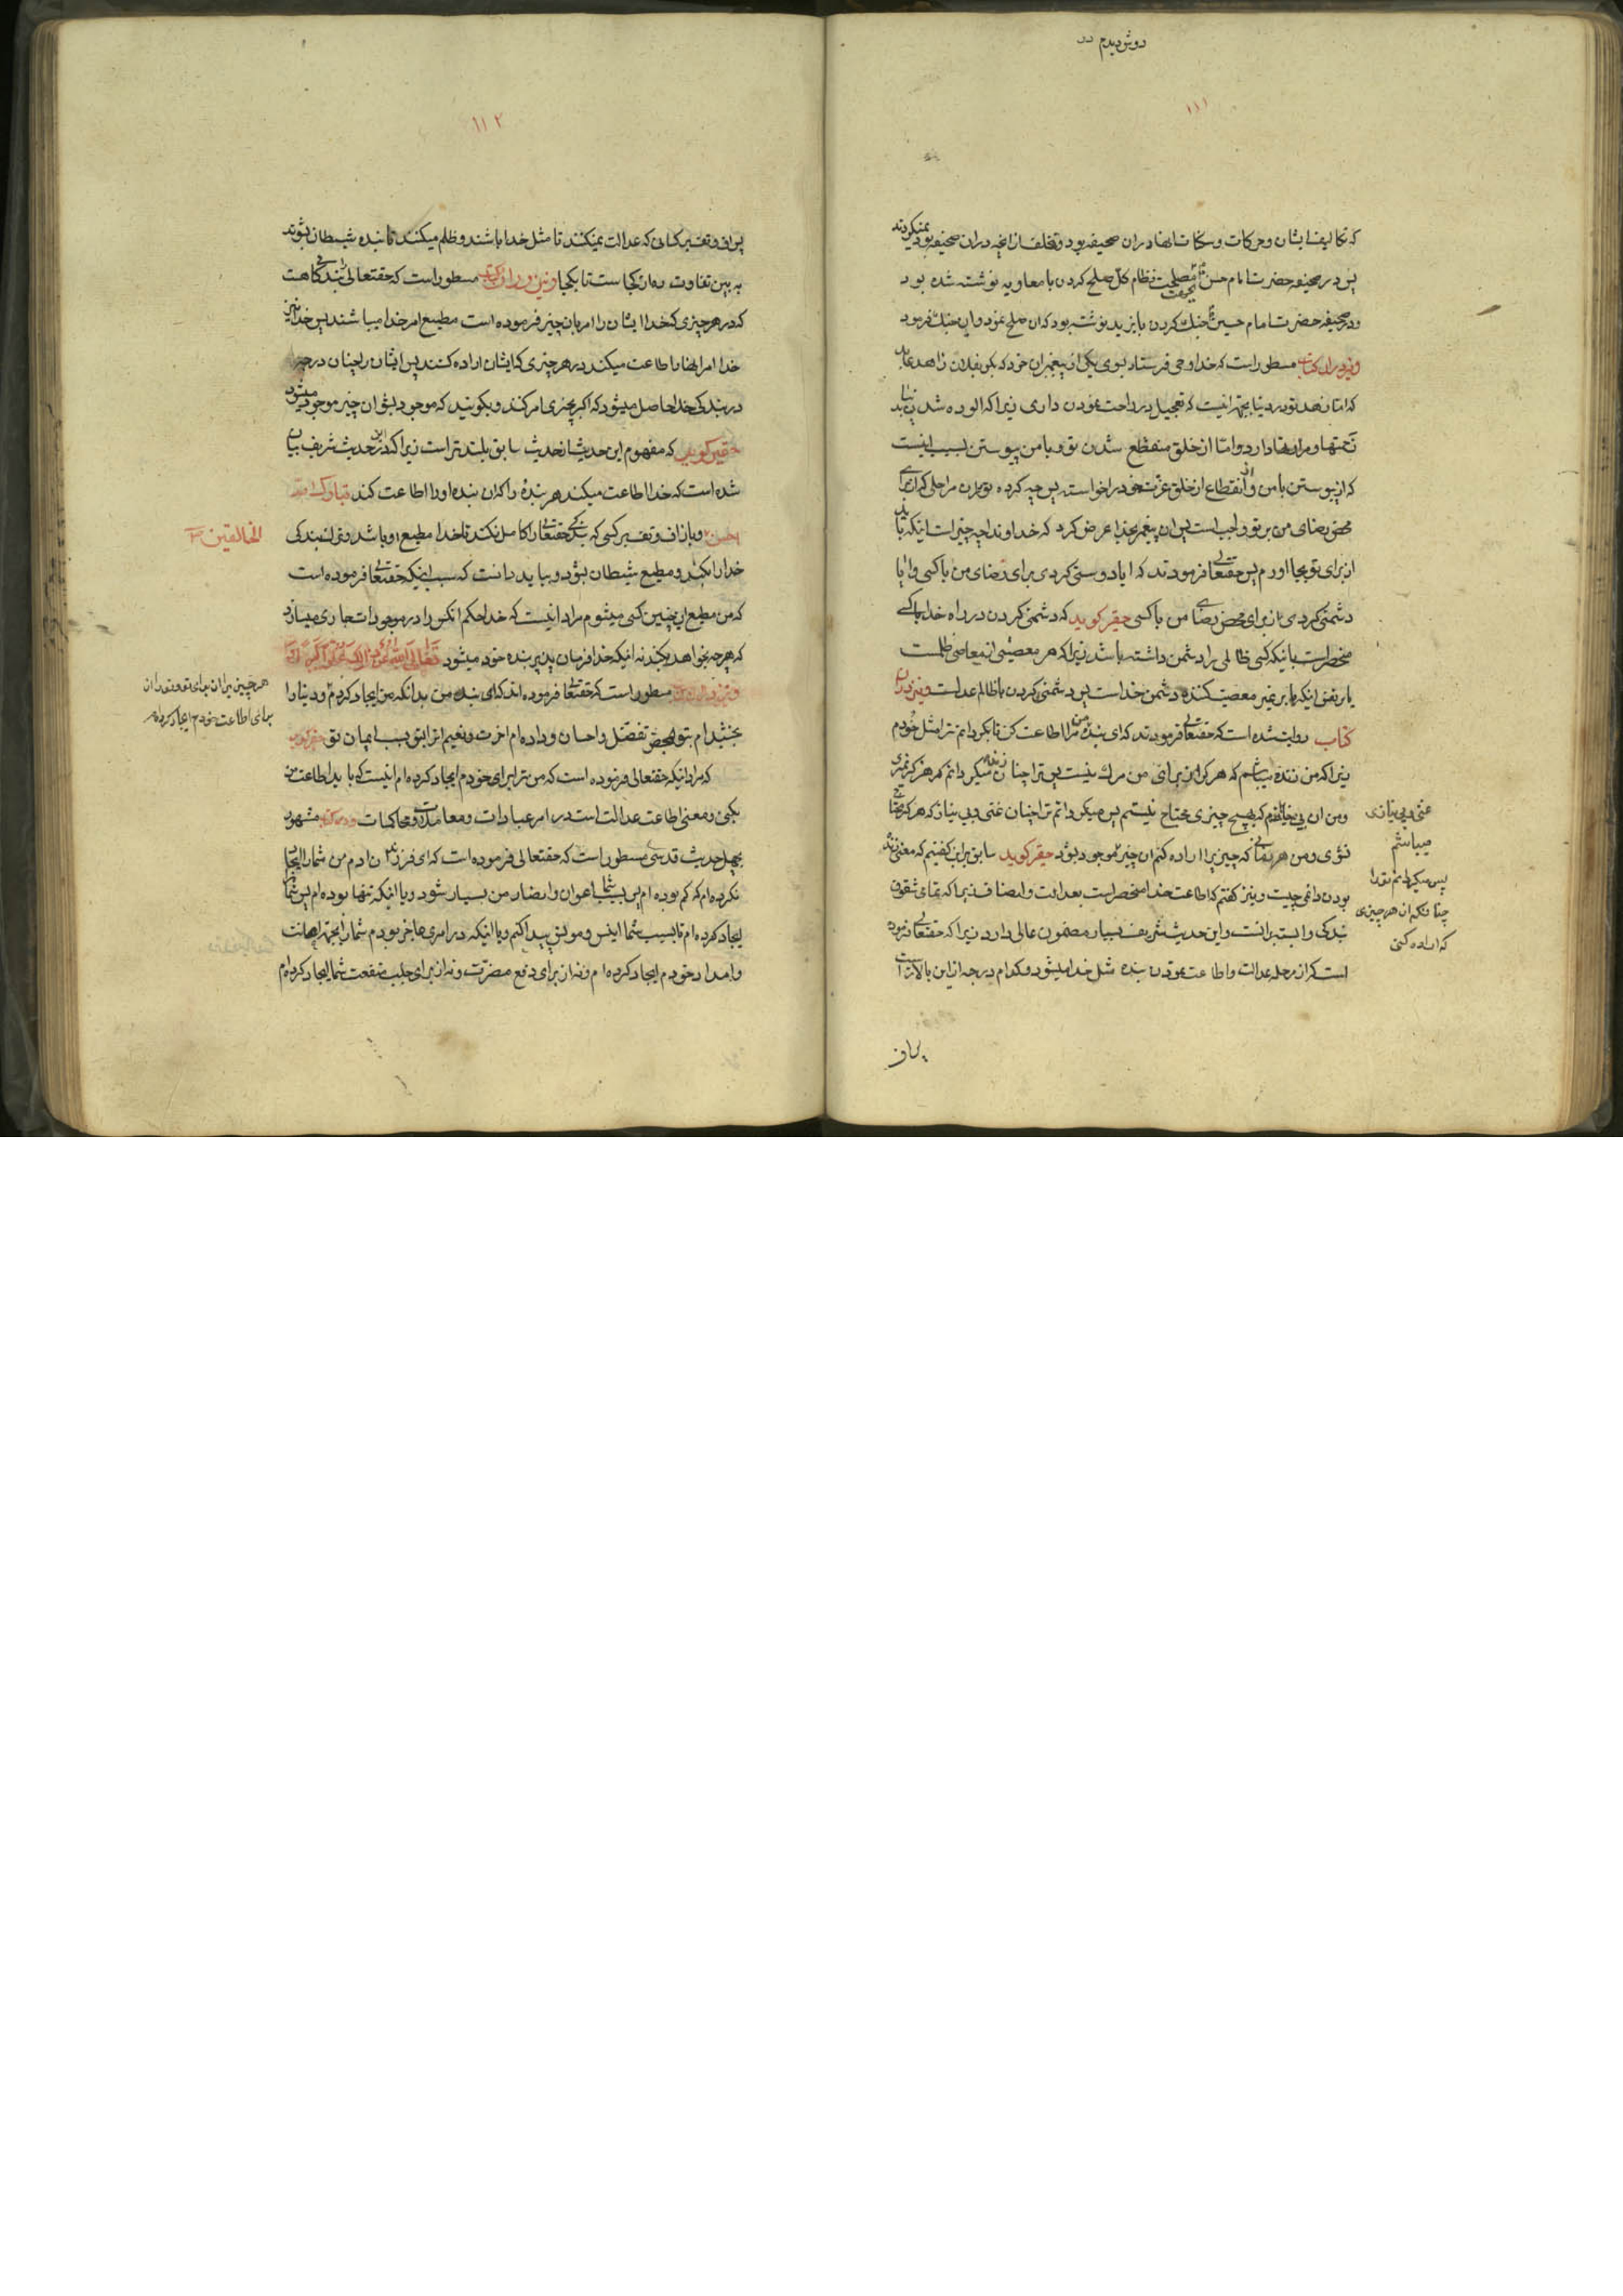 دوش دیدم در
۱۱۱
که تکالیف ایشان و حرکات و سکنات انها در ان صحیفه بود و تخلف از انچه در ان صحیفه بود نمیکردند
پس در صحیفه حضرت امام حسن مصلحت نظام کل صلح کردن با معاویه نوشته شده بود
و در صحیفه حضرت امام حسین جنك کردن با یزید نوشته بود که ان صلح نمود و این جنك فرمود
و نیز در ان کتاب مسطور است که خدا وحی فرستاد بسوی یکی از پیغمبران خود که بگو بفلان زاهد عابد
که اما زهد تو در دنیا بجهة انیست که تعجیل در راحت نمودن داری زیرا که الوده شدن بدنیا
زحمتها و مرارتها دارد و اما از خلق منقطع شدن تو و با من پیوستن بسبب اینست
که از پیوستن با من و انقطاع از خلق عزت خود را خواسته پس چه کرده تو در ان مراحلی که از برای
محض رضای من بر تو واجب است پس ان پیغمبر بخدا عرض کرد که خداوندا چه چیز است اینکه باید
از برای تو بجا اورم پس حقتعالی فرمودند که ایا دوستی کردی برای رضای من با کسی و ایا
دشمنی کردی از برای محض رضای من با کسی حقیر کوید که دشمنی کردن در راه خدا با کسی
منحصر است باینکه کسی ظالمی را دشمن داشته باشد زیرا که هر معصیتی از معاصی ظلمست
کتاب روایت شده است که حقتعالی فرمودند که ای بنده من مرا اطاعت کن تا بکردانم ترا مثل خودم
زیرا که من زنده میباشم که هرکز از برای من مرك نیست پس ترا چنان زنده میکردانم که هرکز نمیری
و من ان بی نیازم که بهیچ چیزی محتاج نیستم پس میکردانم ترا انچنان غنی و بی نیاز که هرکز محتاج
نشوی و من هر زمانی که چیزیرا اراده کنم ان چیز موجود بشود حقیر کوید سابق بر این کفتیم که معنی زنده
بودن دائمی چیست و نیز کفتم که اطاعت خدا منحصر است بعدالت و انصاف زیرا که تمامی شقوق
بندکی وابسته بر انست و این حدیث شریف بسیار مضمون عالی دارد زیرا که حقتعالی فرموده
است که از مرحله عدالت و اطاعت نمودن بنده مثل خدا میشود و کدام درجه از این بالاتر است
غنی و بی نیازی
میباشم
پس میکردانم تو را
چنانکه ان هر چیزی
که اراده کنی
پس اف
۱۱۲
پس اف و تف بر کسانی که عدالت نمیکنند تا مثل خدا باشند و ظلم میکنند تا بنده شیطان بشوند
به بین تفاوت ره از کجاست تا بکجا و نیز در ان کتاب مسطور است که حقتعالی را بندکانی هست
که در هر چیزی که خدا ایشان را امر بان چیز فرموده است مطیع امر خدا میباشند پس خدا نیز
خدا امر انها را اطاعت میکند در هر چیزی که ایشان اراده کنند پس ایشان را چنان درجه
در بندکی خدا حاصل میشود که اکر بچیزی امر کنند و بکویند که موجود بشو ان چیز موجود میشود
حقیر کوید که مفهوم این حدیث از حدیث سابق بلندتر است زیرا که در این حدیث شریف بیان
شده است که خدا اطاعت میکند هر بنده را که ان بنده او را اطاعت کند تبارك الله
احسن الخالقین و باز اف و تف بر کسی که بندکی حقتعالی را کامل نکند تا خدا مطیع او باشد و ترك بندکی
خدا را بکند و مطیع شیطان بشود و بباید دانست که سبب اینکه حقتعالی فرموده است
که من مطیع این چنین کسی میشوم مراد انیست که خدا حکم انکس را در موجودات جاری میسازد
که هر چه بخواهد بکند نه اینکه خدا فرمان پذیر بنده خود میشود
مسطور است که حقتعالی فرموده اند که ای بنده من بدانکه من ایجاد کردم و دنیا را
هر چیز را از برای تو و تو را از
برای اطاعت خودم ایجاد کرده ام
بخشیدام بتو بمحض تفضل و احسان و داده ام اخرت و نعیم انرا بتو بسبب ایمان تو حقیر کوید
که مراد اینکه حقتعالی فرموده است که من ترا برای خودم ایجاد کرده ام انیست که باید اطاعت من
بکنی و معنی اطاعت عدالت است در امر عبادات و معاملات و محاکمات و در کتاب مشهور
بچهل حدیث قدسی مسطور است که حقتعالی فرموده است که ای فرزندان ادم من شما را ایجاد
نکرده ام که کم بوده ام پس بسبب شما اعوان و انصار من بسیار شود و یا اینکه تنها بوده ام پس شما را
ایجاد کرده ام تا بسبب شما انیس و مونس پیدا کنم و یا اینکه در امری عاجز بودم شما را بجهة اعانت
و امداد خودم ایجاد کرده ام و نه از برای دفع مضرت و نه از برای جلب منفعت شما را ایجاد کرده ام